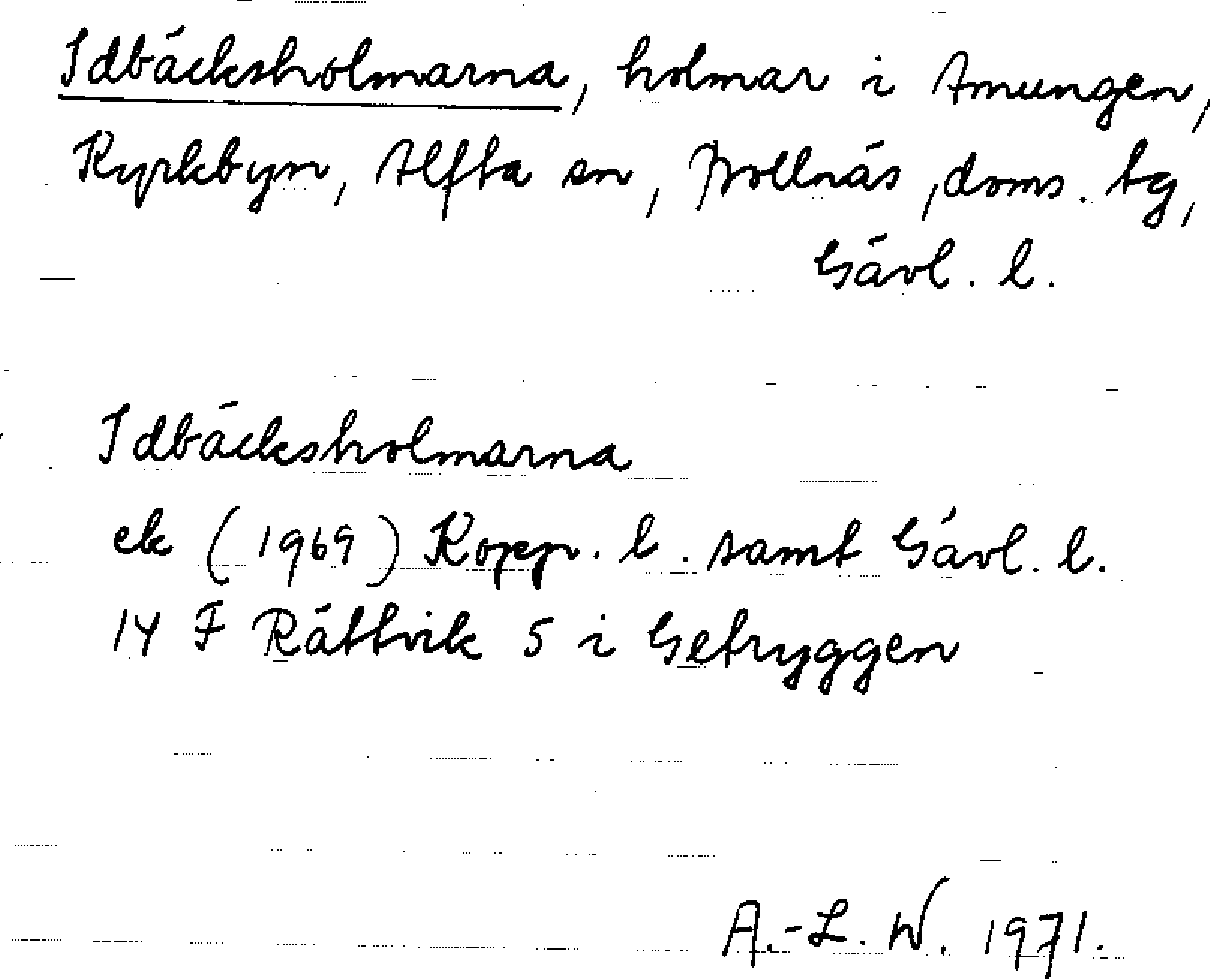 Idbäcksholmarna, holmar i Amungen,
Kyrkbyn, Alfta sn, Bollnäs, doms. tg,
Gävl. l.
Idbäcksholmarna
ek (1969) Kopp. l. samt Gävl. l.
14 F Rättvik 5 i Getryggen
A.-L. W. 1971.